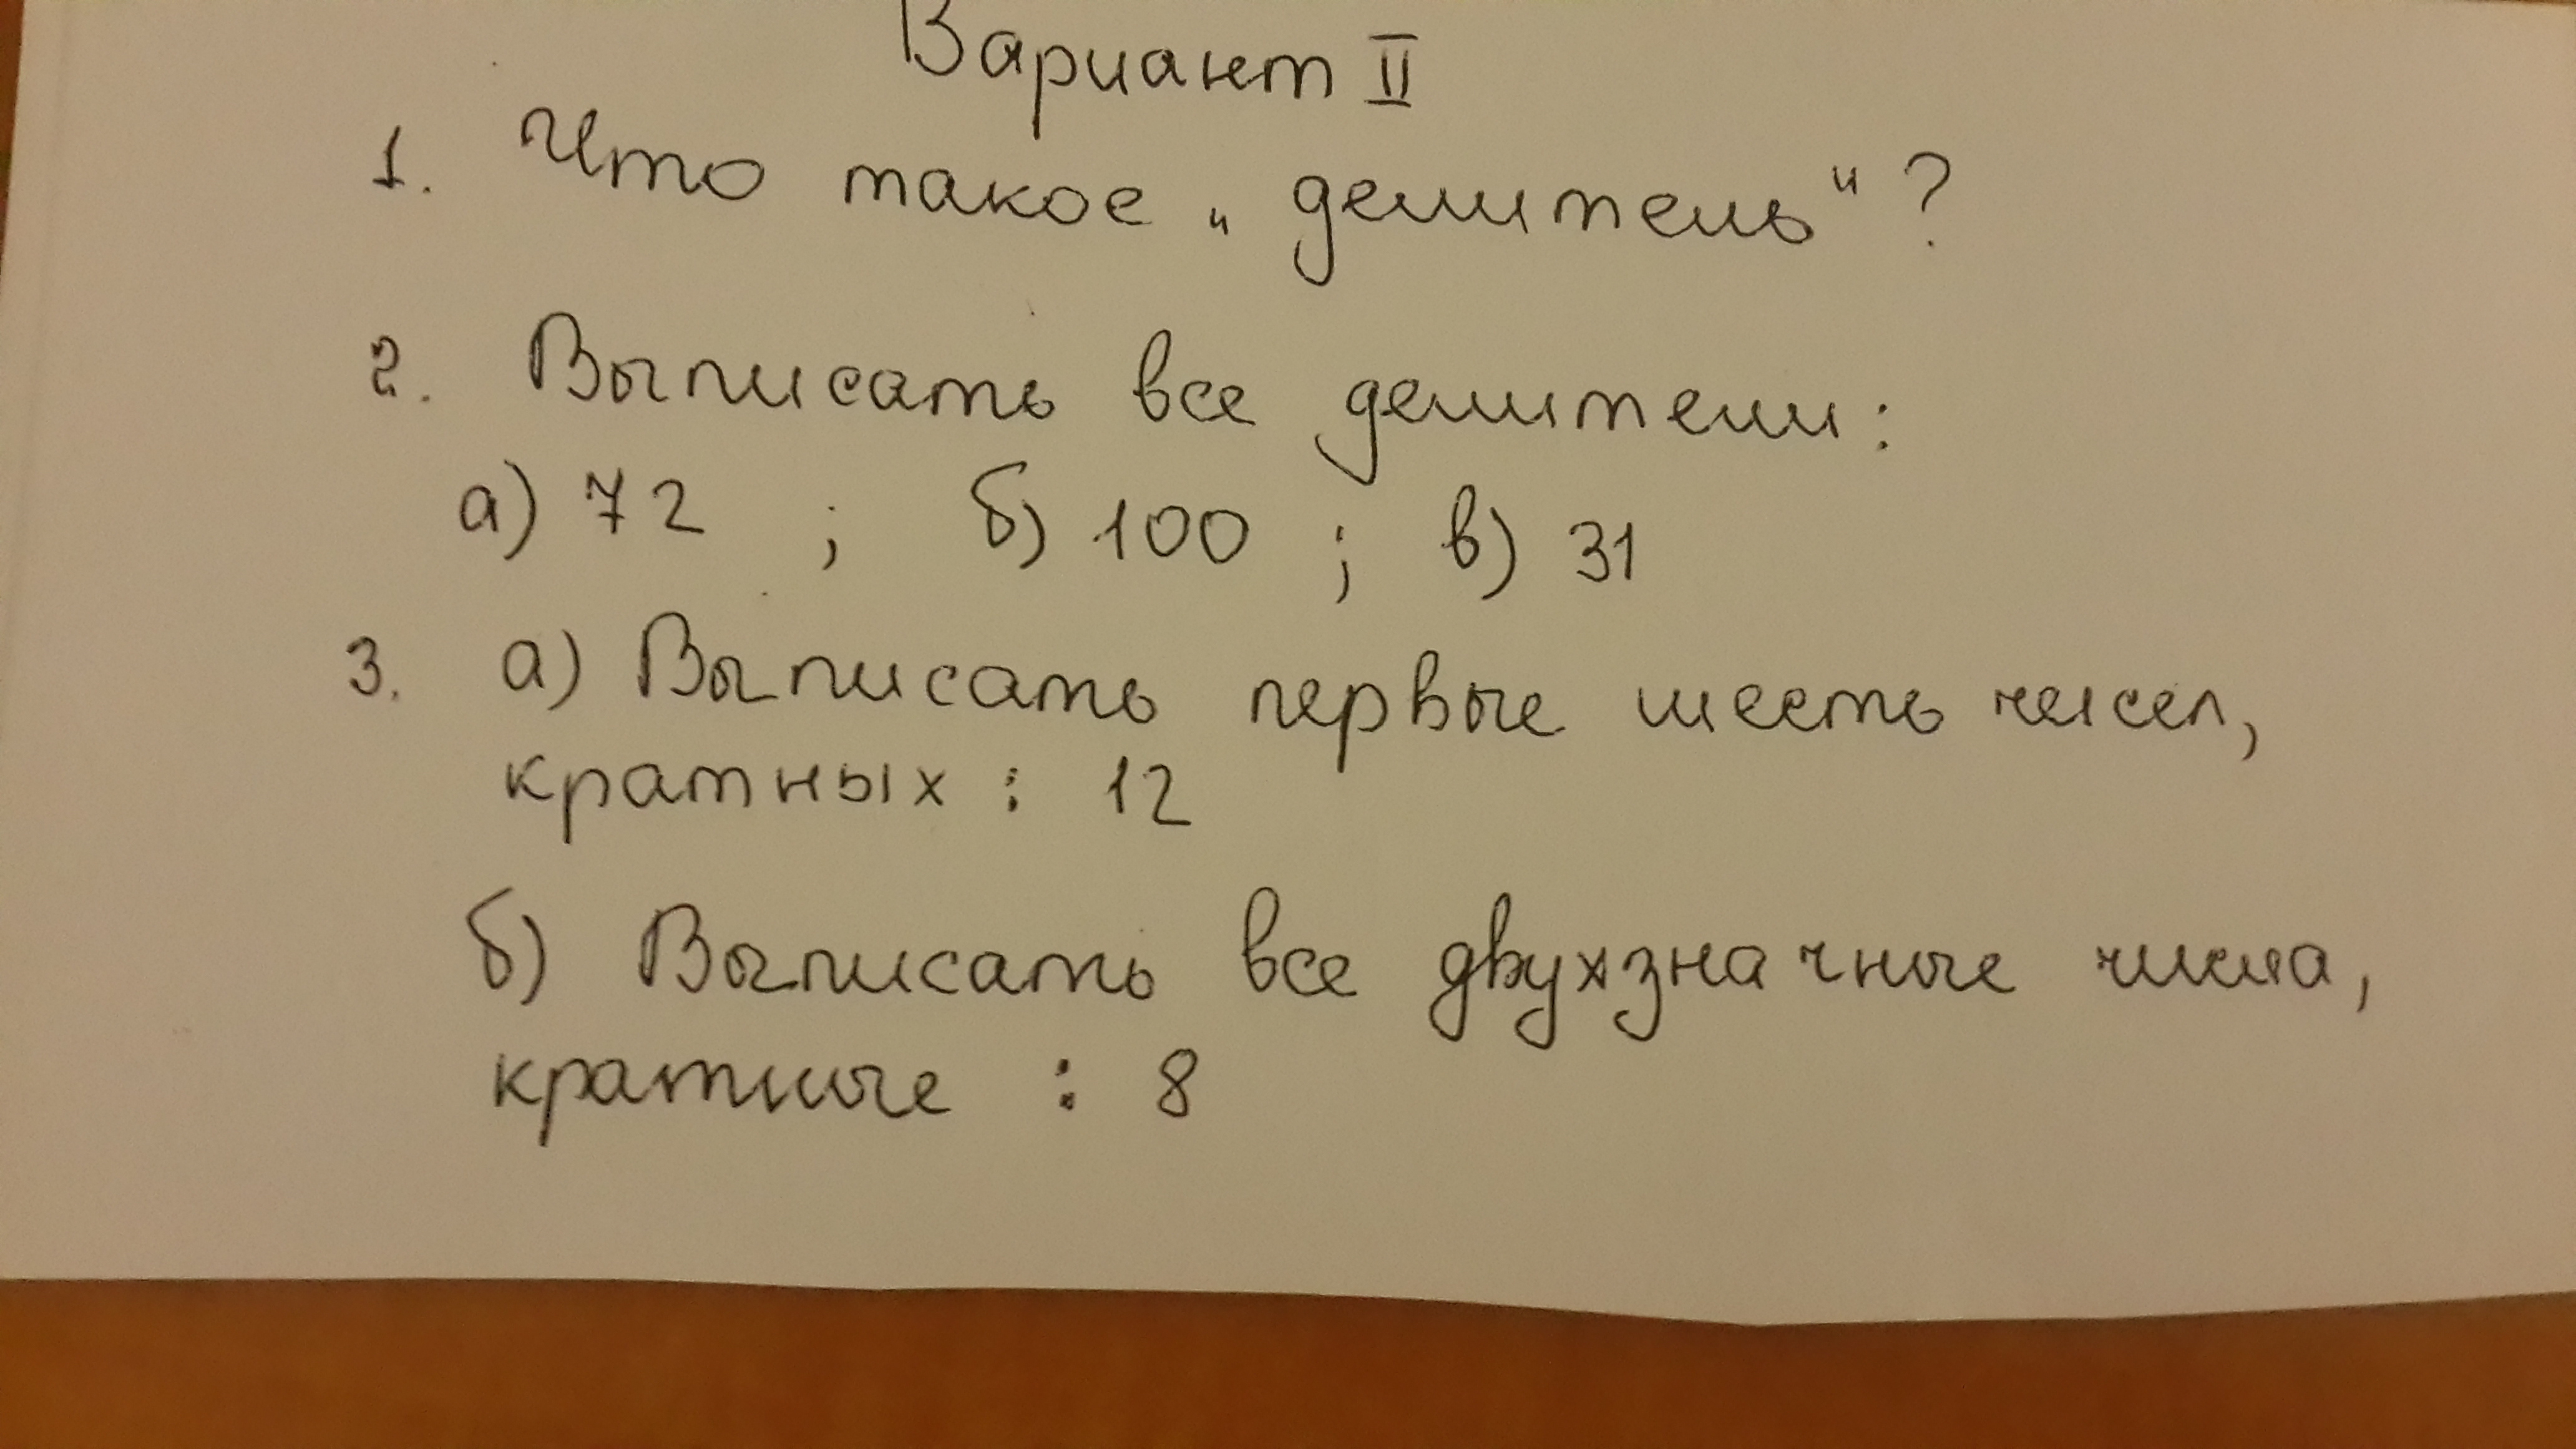 Вариант II
1. Что такое „делитель“?
2. Выписать все делители:
а) 72 ; б) 100 ; в) 31
3. а) Выписать первые шесть чисел,
кратных : 12
б) Выписать все двухзначные числа,
кратные : 8